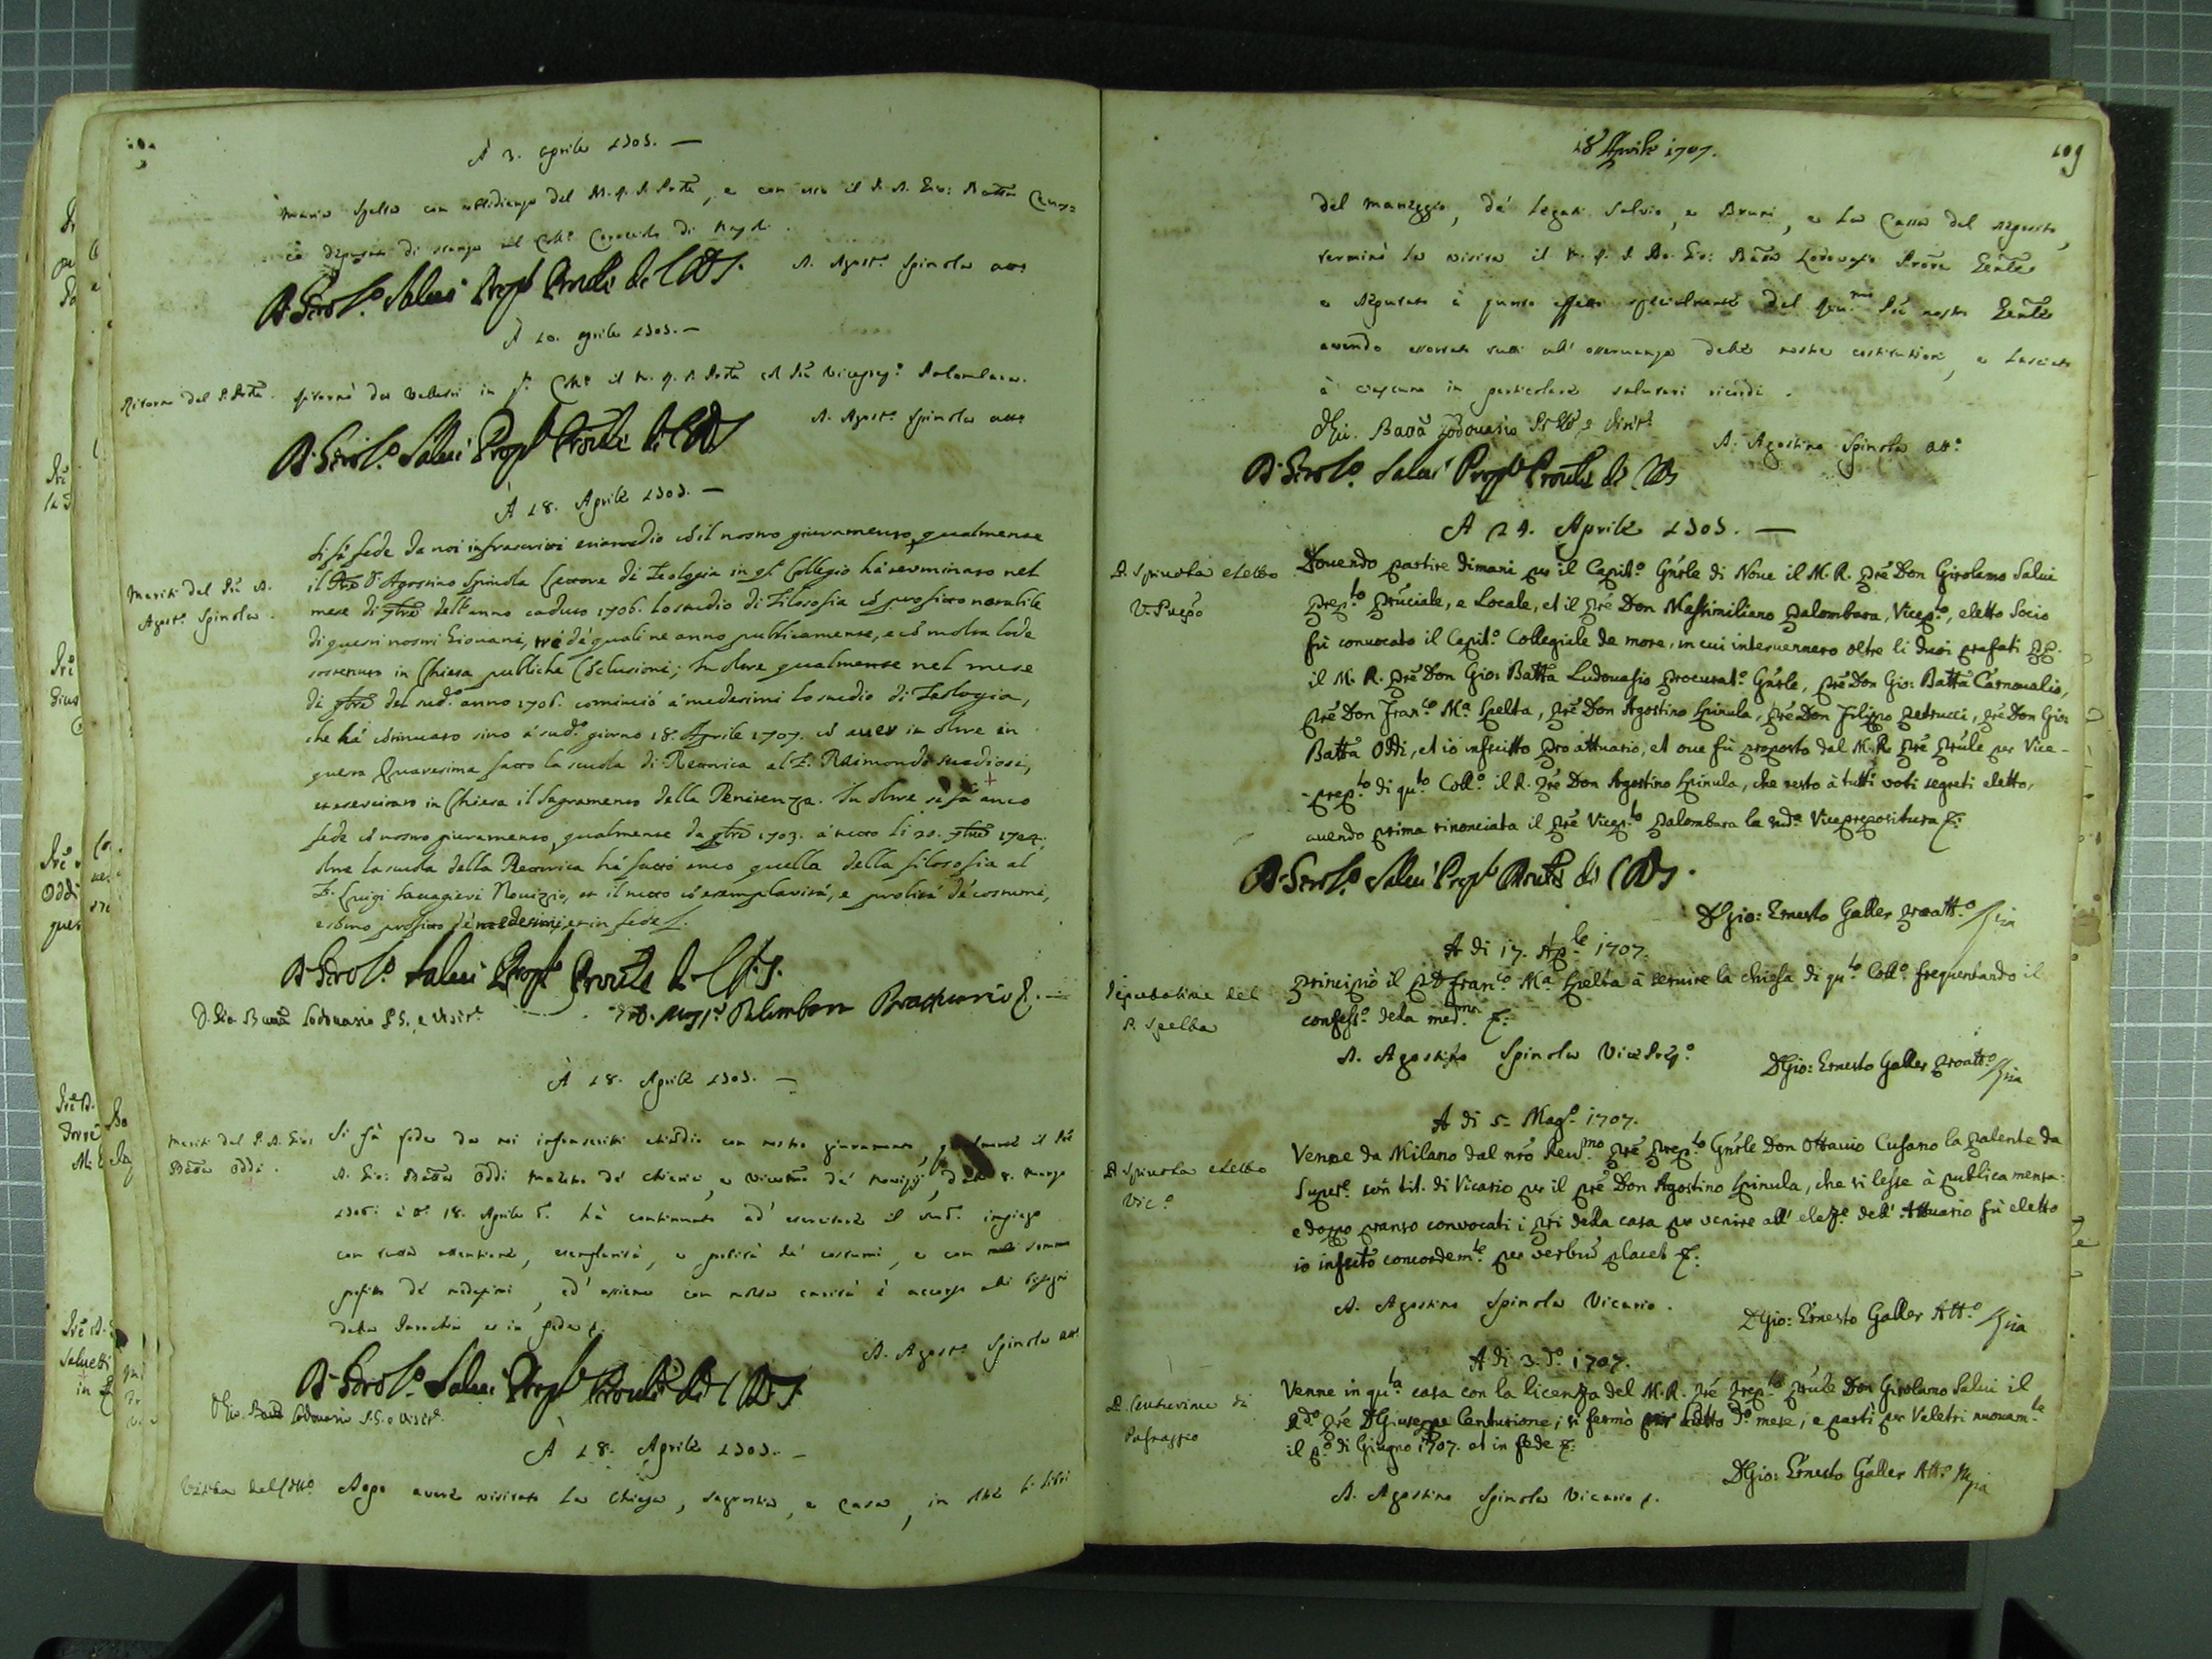 À 3. Aprile 1707. —
Maria Spelta con ubbidienza del M. R. P. Prõle, e con esso il P. D. Gio: Batta Carno=
di stanza nel Coll.º
D. Agost.º Spinola att.º
D. Girol.º Salui Prep.to Prouĩle di C. M. S.
À 10. Aprile 1707. —
Ritorno del P. Prõle.
Ritornò da Velletri in q.º Coll.º il M. R. P. Prõle col Prẽ Viceprep.º Palombara.
D. Agost.º Spinola att.º
D. Girol.º Salui Prep.to Prouĩle di C. M. S.
À 18. Aprile 1707. —
Meriti del Prẽ D.
Agost.º Spinola.
Si fà fede da noi infrascritti eziamdio cõ il nostro giuramento, qualmente
il Prẽ D. Agostino Spinola Lettore di Teologia in q.º Collegio hà terminato nel
mese di 9bre dell'anno caduto 1706. lo studio di Filosofia cõ profitto notabile
di questi nostri Giouani, trè de' quali ne anno pubblicamente, e cõ molta lode
sostenuto in Chiesa publiche Cõclusioni; In oltre qualmente nel mese
di 9bre del sud.º anno 1706. cominciò a' medesimi lo studio di Teologia,
che hà cõtinuato sino a' sud.º giorno 18. Aprile 1707. cõ auer in oltre in
questa Quaresima fatto la scuola di Rettorica al F. Raimondo Studiosi,
et esercitato in Chiesa il Sagramento della Penitenza. In oltre si fà anco
fede cõ nostro giuramento, qualmente da 9bre 1703. a' tutto li 20. 9bre 1704.
oltre la scuola della Rettorica hà fatto anco quella della filosofia al
F. Luigi Nouizio, et il tutto cõ esemplarità, e politia de' costumi,
e sõmo profitto de' medesimi, et in fede
D. Girol.º Salui Prep.to Prouĩle di C. M. S.
D. Gio. Batta Lodouasio P. G., e Visit.r
D. Mass.º Palombara Proattuario
À 18. Aprile 1707. —
Meriti del P. D. Gio:
Batta Oddi.
Si fà fede da noi infrascritti etiãdio con nostro giuramento, qualmente il Prẽ
D. Gio: Batta Oddi Maestro de' Chierici, e de' Nouizzj, dalli 8. Marzo
1706. à d.º 18. Aprile hà continuato ad' esercitare il sud.º impiego
con tutta attentione, esemplarità, e politia de' costumi, e con sommo
profitto de' medesimi, ed' assieme con molta carità è accorso alli bisogni
della Parochia et in fede
D. Agost.º Spinola att.º
D. Girol.º Salui Prep.to Prouĩle di C. M. S.
D. Gio. Batta Lodouasio P. G. e Visit.r
À 18. Aprile 1707. —
Visita del Coll.º
Dopo auere visitato la Chiesa, sagrestia, e Casa, in oltre li libri
18 Aprile 1707.
109
del maneggio, de' legati Saluio, e Bruni, e la Cassa del deposito,
terminò la visita il M. R. P. Do. Gio: Batta Lodouasio Procu. Genle
e deputato à questo effetto spetialmente dal Reu.mo Prẽ nostro Genle
auendo essortato tutti all' osseruanza delle nostre costitutioni, e lasciato
à ciascuno in particolare salutari ricordi.
D. Gio. Batta Lodouasio P. G. e Visit.r
D. Agostino Spinola att.º
D. Girol.º Salui Prep.to Prouĩle di C. M. S.
A 24. Aprile 1707. —
D. Spinola eletto
V. Prepº
Douendo partire dimani per il Capit.º Gñrle di Noue il M. R. Prẽ Don Girolamo Salui
Prep.to Prũciale, e Locale, et il Prẽ Don Massimiliano Palombara, Vicep.to, eletto Socio
fù conuocato il Capit.º Collegiale de more, in cui interuennero oltre li duoi prefati PP.
il M. R. Prẽ Don Gio: Batta Ludouasio Procurat.º Gñrle, Prẽ Don Gio: Batta Carnoualis,
Prẽ Don Fran.co M.a Spelta, Prẽ Don Agostino Spinula, Prẽ Don Filippo Petrucci, Prẽ Don Gio:
Batta Oddi, et io infscitto Proattuario, et oue fù proposto dal M. R. Prẽ Prũle per Vice-
-prep.to di qu.to Coll.º il R. Prẽ Don Agostino Spinula, che restò à tutti voti segreti eletto,
auendo prima rinonciata il Prẽ Vicep.to Palombara la sud.a Viceprepositura
D. Girol.º Salui Prep.to Prouĩle di C. M. S.
D Gio: Ernesto Galler Proatt.º
A di 17. Ap.le 1707.
Deputatione del
P. Spelta
Principiò il P D Fran.co M.a Spelta à seruire la chiesa di qu.to Coll.º frequentando il
confess.º dela med.ma
D. Agostino Spinola Vice Prep.º
D Gio: Ernesto Galler Proatt.º
A di 5. Mag.º 1707.
D. Spinola eletto
Vic.º
Venne da Milano dal nrõ Reu.mo Prẽ Prep.to Gñrle Don Ottauio Cusano la patente da
Super.e con tit. di Vicario per il Prẽ Don Agostino Spinula, che si lesse à publica mensa:
e doppo pranso convocati i Pri della casa per venire all' elez.e dell' Attuario fù eletto
io infscitto concordem.te per verbũ placet
D. Agostino Spinola Vicario.
D Gio: Ernesto Galler Att.º
A di 3. d.º 1707.
D. Centurione di
Passaggio
Venne in qu.ta casa con la licenza del M. R. Prẽ Prep.to Prũle Don Girolamo Salui il
R.do Prẽ D Giuseppe Centurione; si fermò tutto d.º mese; e partì per Veletri nuouam.te
il p.º di Giugno 1707. et in fede
D. Agostino Spinola Vicario
D Gio: Ernesto Galler Att.º